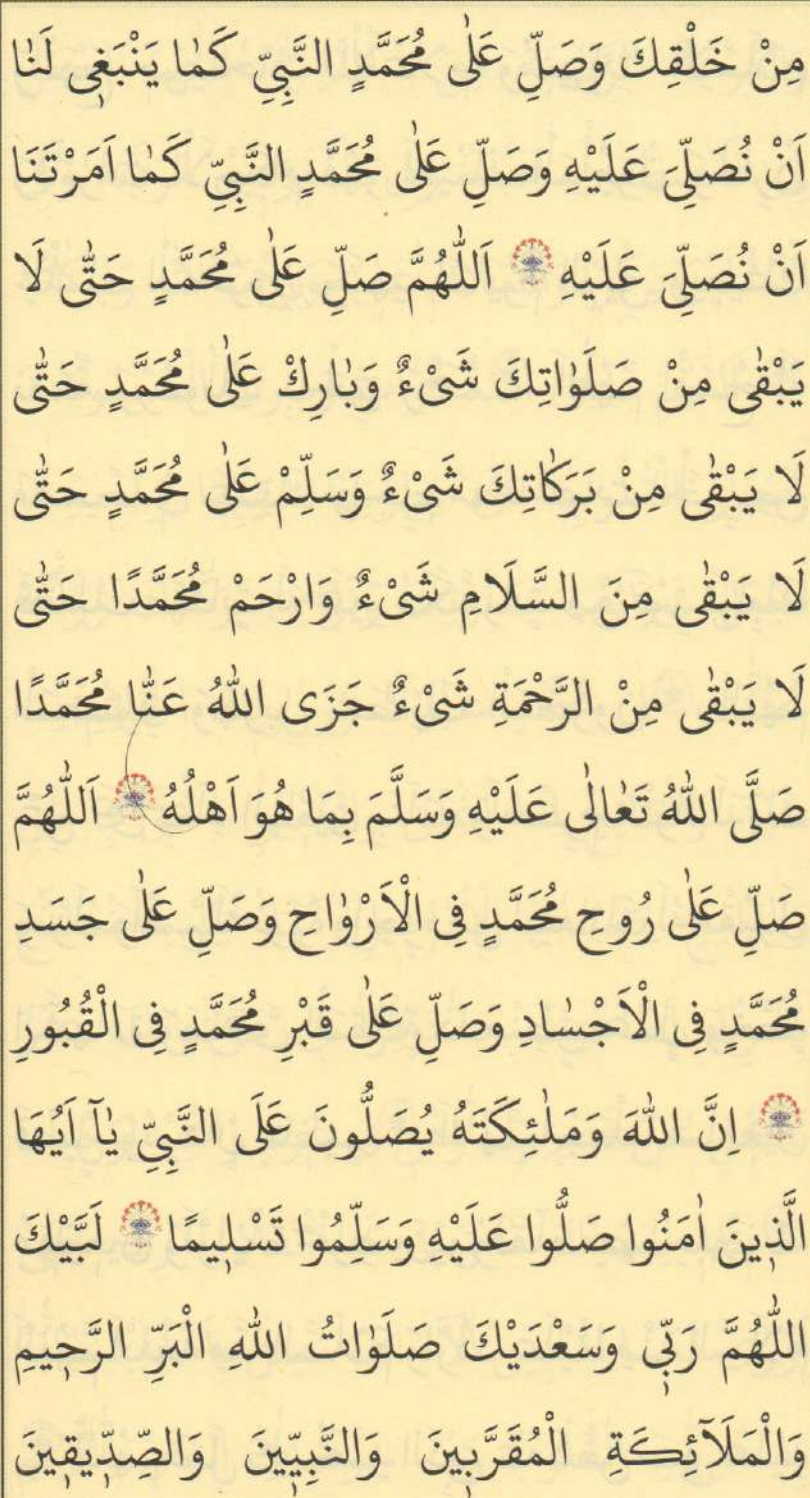 مِنْ خَلْقِكَ وَصَلِّ عَلٰى مُحَمَّدٍ النَّبِيِّ كَمٰا يَنْبَغٖى لَنٰا
اَنْ نُصَلِّيَ عَلَيْهِ وَصَلِّ عَلٰى مُحَمَّدٍ النَّبِيِّ كَمٰا اَمَرْتَنَا
اَنْ نُصَلِّيَ عَلَيْهِ اَللّٰهُمَّ صَلِّ عَلٰى مُحَمَّدٍ حَتّٰى لَا
يَبْقٰى مِنْ صَلَوٰاتِكَ شَىْءٌ وَبٰارِكْ عَلٰى مُحَمَّدٍ حَتّٰى
لَا يَبْقٰى مِنْ بَرَكٰاتِكَ شَىْءٌ وَسَلِّمْ عَلٰى مُحَمَّدٍ حَتّٰى
لَا يَبْقٰى مِنَ السَّلَامِ شَىْءٌ وَارْحَمْ مُحَمَّدًا حَتّٰى
لَا يَبْقٰى مِنْ الرَّحْمَةِ شَىْءٌ جَزَى اللّٰهُ عَنّٰا مُحَمَّدًا
صَلَّى اللّٰهُ تَعٰالٰى عَلَيْهِ وَسَلَّمَ بِمَا هُوَ اَهْلُهُ اَللّٰهُمَّ
صَلِّ عَلٰى رُوحِ مُحَمَّدٍ فِى الْاَرْوٰاحِ وَصَلِّ عَلٰى جَسَدِ
مُحَمَّدٍ فِى الْاَجْسٰادِ وَصَلِّ عَلٰى قَبْرِ مُحَمَّدٍ فِى الْقُبُورِ
اِنَّ اللّٰهَ وَمَلٰئِكَتَهُ يُصَلُّونَ عَلَى النَّبِيِّ يٰآ اَيُهَا
الَّذٖينَ اٰمَنُوا صَلُّوا عَلَيْهِ وَسَلِّمُوا تَسْلٖيمًا لَبَّيْكَ
اللّٰهُمَّ رَبّٖى وَسَعْدَيْكَ صَلَوٰاتُ اللّٰهِ الْبَرِّ الرَّحٖيمِ
وَالْمَلَآئِكَةِ الْمُقَرَّبٖينَ وَالنَّبِيّٖينَ وَالصِّدّٖيقٖينَ